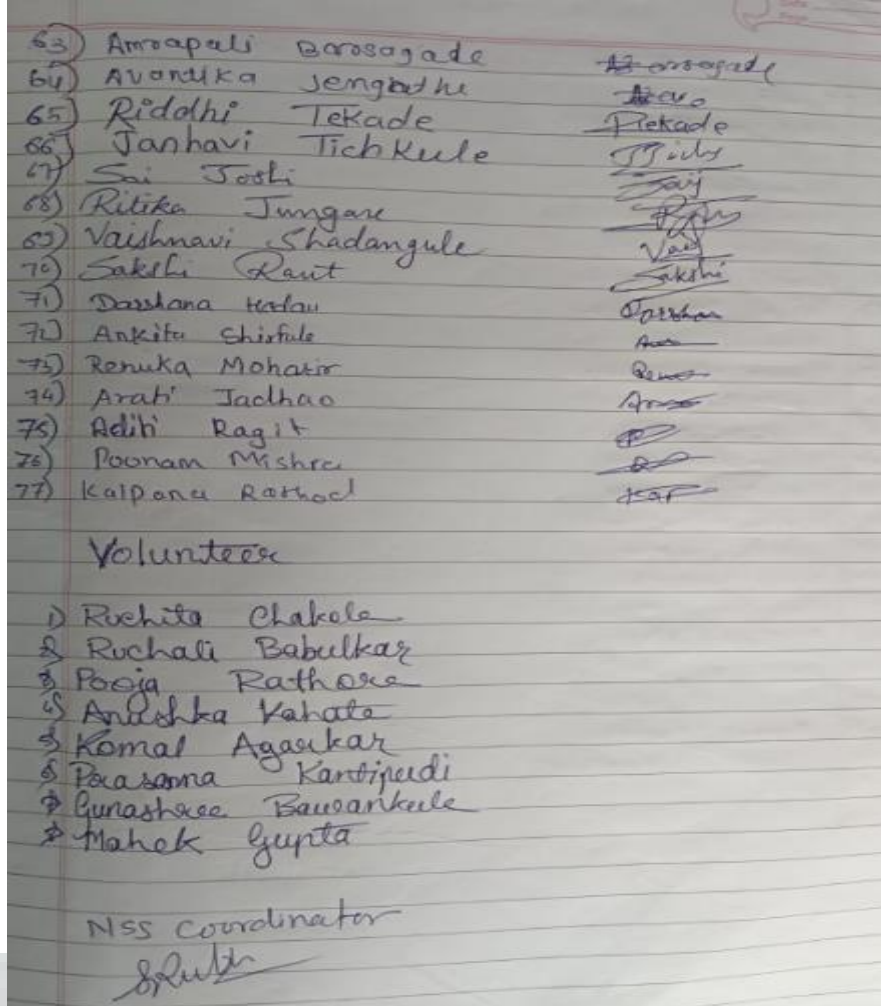 63) Amrapali Barosagade
64) Avantika Jengathe
65) Riddhi Tekade Rtekade
66) Janhavi Tichkule
67) Sai Joshi Saij
68) Ritika Jungare
69) Vaishnavi Shadangule Vaij
70) Sakshi Raut Sakshi
71) Darshana Darshan
72) Ankita Shirfule
73) Renuka Moharir Renu
74) Arati Jadhao
75) Aditi Ragit
76) Poonam Mishra
77) Kalpana Rathod Kap
Volunteer
1) Ruchita Chakole
2) Ruchali Babulkar
3) Pooja Rathore
4) Anushka Vahate
5) Komal Agarkar
6) Prasanna Kantipudi
7) Gunashree Bawankule
Mahek Gupta
NSS coordinator